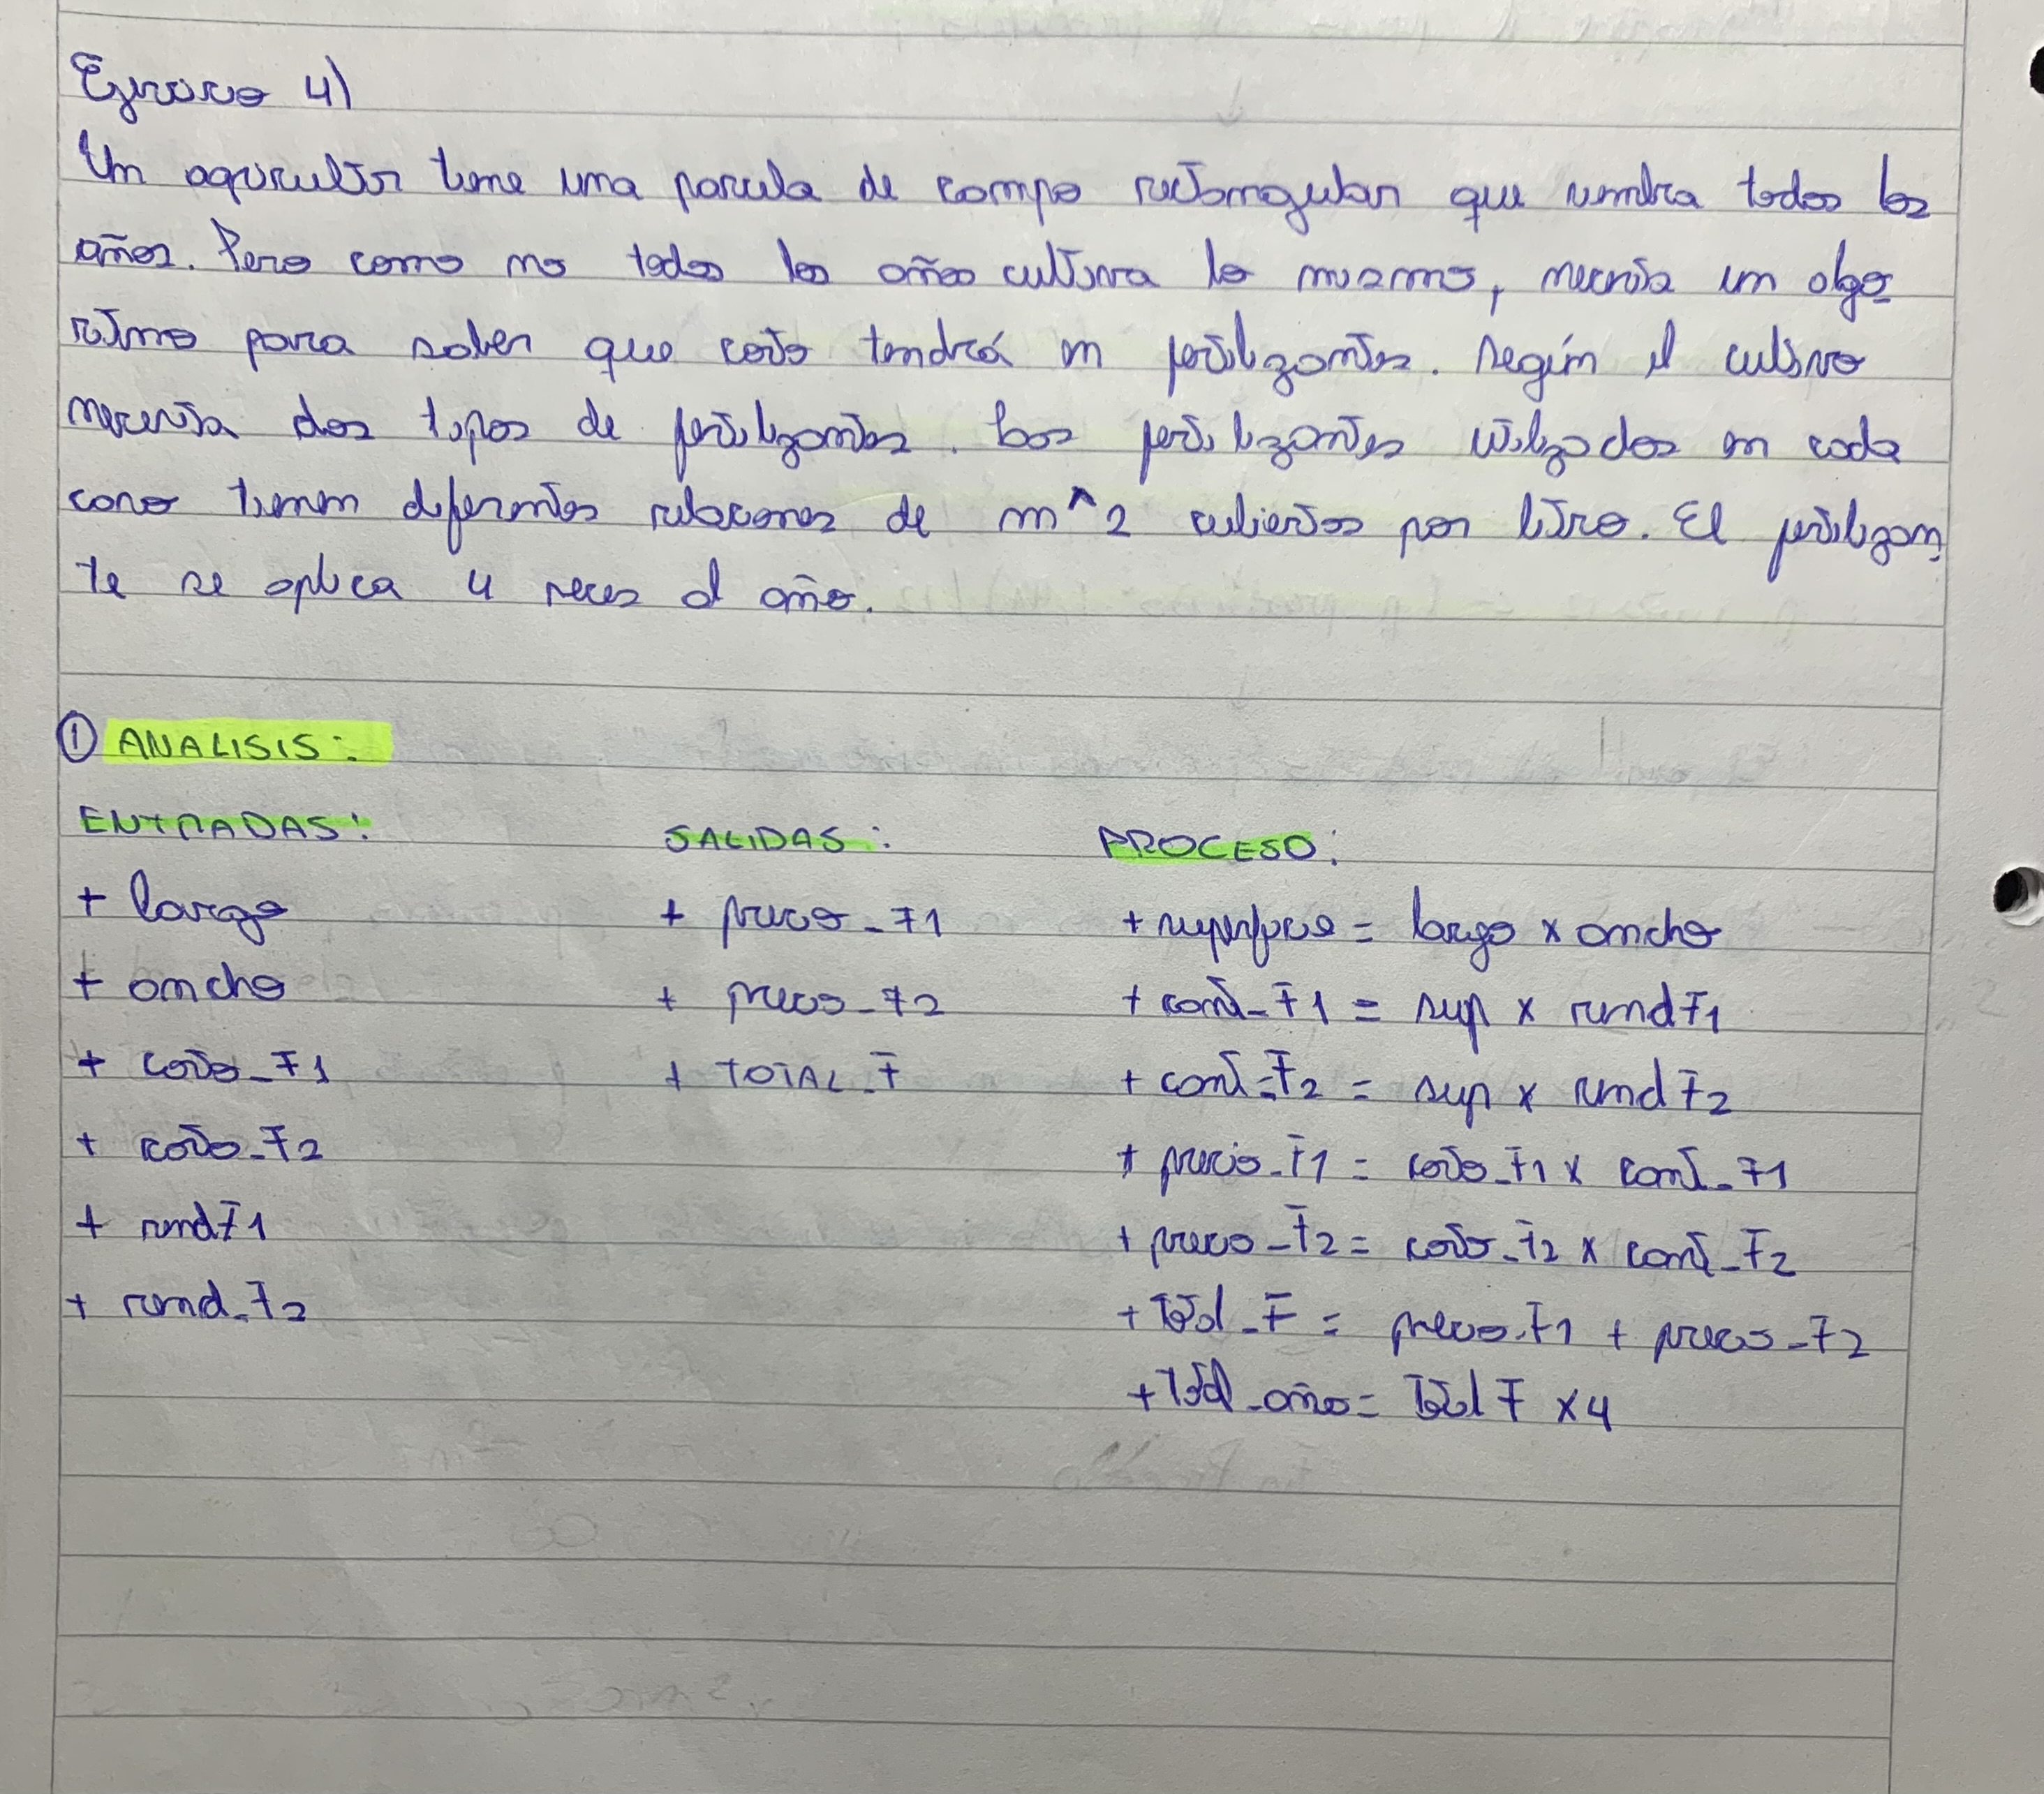 Ejercicio 4)
Un agricultor tiene una parcela de campo rectangular que siembra todos los
años. Pero como no todos los años cultiva lo mismo, necesita un algo
ritmo para saber que costo tendrá en fertilizantes. Según el cultivo
necesita dos tipos de fertilizantes. Los fertilizantes utilizados en cada
caso tienen diferentes relaciones de m^2 cubiertos por litro. El fertilizan
te se aplica 4 veces al año.
① ANALISIS:
ENTRADAS: SALIDAS: PROCESO:
+ largo + precio_F1 + superficie = largo x ancho
+ ancho + precio_F2 + cant_F1 = sup x rendF1
+ costo_F1 + TOTAL_F + cant_F2 = sup x rendF2
+ costo_F2 + precio_F1 = costo_F1 x cant_F1
+ rendF1 + precio_F2 = costo_F2 x cant_F2
+ rend_F2 + total_F = precio_F1 + precio_F2
+ total_año = total F x4